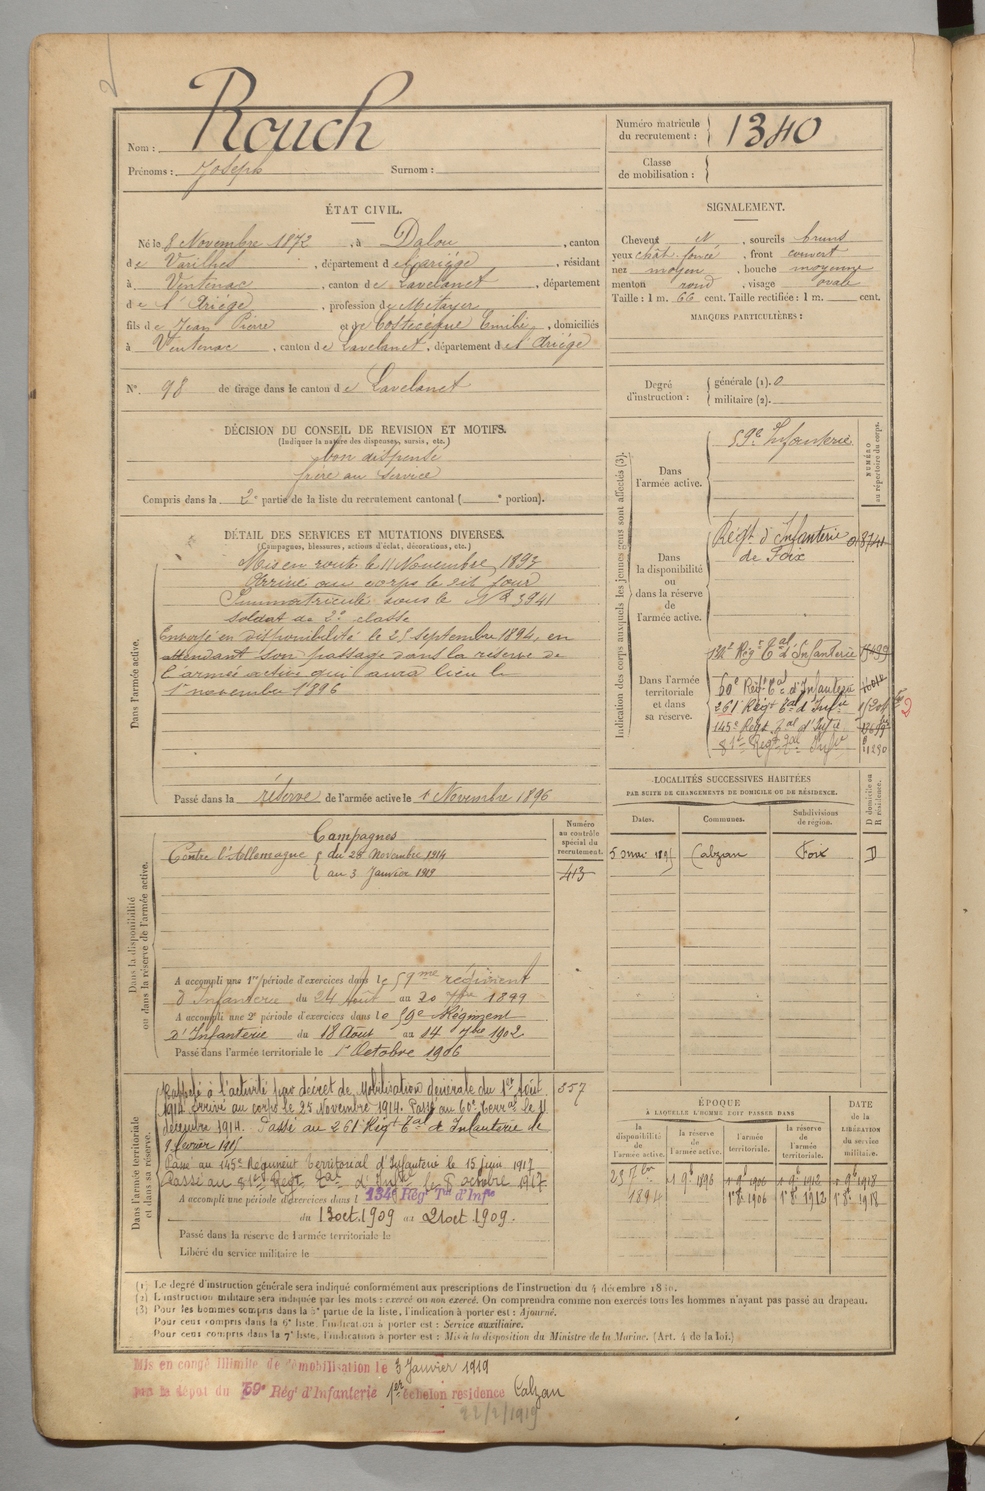 Nom : Rouch
Prénoms : Joseph Surnom :
Numéro matricule du recrutement : 1340
Classe de mobilisation :
ÉTAT CIVIL.
Né le 8 Novembre 1872, à Dalou, canton
de Varilhes, département de l'Ariège, résidant
à Ventenac, canton de Lavelanet, département
de l'Ariège, profession de Métayer
fils de Jean Pierre et de Costecèque Emilie, domiciliés
à Ventenac, canton de Lavelanet, département de l'Ariège
N° 98 de tirage dans le canton de Lavelanet
SIGNALEMENT.
Cheveux et, sourcils bruns
yeux chât. foncé, front couvert
nez moyen, bouche moyenne
menton rond, visage ovale
Taille : 1 m. 66 cent. Taille rectifiée : 1 m. cent.
MARQUES PARTICULIÈRES :
Degré d'instruction : générale (1). 0
militaire (2).
DÉCISION DU CONSEIL DE REVISION ET MOTIFS.
(Indiquer la nature des dispenses, sursis, etc.)
bon dispensé
frère au service
Compris dans la 2e partie de la liste du recrutement cantonal ( e portion).
DÉTAIL DES SERVICES ET MUTATIONS DIVERSES.
(Campagnes, blessures, actions d'éclat, décorations, etc.)
Dans l'armée active.
Mis en route le 11 Novembre 1893
Arrivé au corps le dit jour
Immatriculé sous le N° 3941
soldat de 2e classe
Envoyé en disponibilité le 25 septembre 1894, en
attendant son passage dans la réserve de
l'armée active qui aura lieu le
1er novembre 1896
Passé dans la réserve de l'armée active le 1 Novembre 1896
Indication des corps auxquels les jeunes gens sont affectés (3).
NUMÉRO au répertoire du corps.
Dans l'armée active.
59e Infanterie
Dans la disponibilité ou dans la réserve de l'armée active.
Régt d'Infanterie
de Foix
Dans l'armée territoriale et dans sa réserve.
134e Régt Tal d'Infanterie
60e Régt Tal d'Infanterie
261 Régt Tal d'Infie
145e Régt Tal d'Infie
81e Régt Tal Infie 1290
Dans la disponibilité ou dans la réserve de l'armée active.
Numéro au contrôle spécial du recrutement.
413
Campagnes
Contre l'Allemagne du 25 Novembre 1914
au 3 Janvier 1919
A accompli une 1re période d'exercices dans le 59me régiment
d'Infanterie du 24 Août au 20 7bre 1899
A accompli une 2e période d'exercices dans le 59e Régiment
d'Infanterie du 18 Août au 14 7bre 1902
Passé dans l'armée territoriale le 1er Octobre 1906
LOCALITÉS SUCCESSIVES HABITÉES
PAR SUITE DE CHANGEMENTS DE DOMICILE OU DE RÉSIDENCE.
D domicile ou R résidence.
Dates. Communes. Subdivisions de région.
5 mai 1895 Calzan Foix D
Dans l'armée territoriale et dans sa réserve.
Rappelé à l'activité par décret de Mobilisation générale du 1er Août
1914 arrivé au corps le 25 Novembre 1914. Passé au 60e Terral le 11
décembre 1914. Passé au 261 Régt Tal d'Infanterie le
9 février 1915
Passé au 145e Régiment Territorial d'Infanterie le 15 juin 1917
Passé au 81e Régt Tal d'Infie le 8 octobre 1917
357
A accompli une période d'exercices dans l 134e Régt Tal d'Infie
du 13 oct. 1909 au 21 oct 1909.
Passé dans la réserve de l'armée territoriale le
Libéré du service militaire le
ÉPOQUE
À LAQUELLE L'HOMME DOIT PASSER DANS
DATE de la LIBÉRATION du service militaire.
la disponibilité de l'armée active. la réserve de l'armée active. l'armée territoriale. la réserve de l'armée territoriale.
25 7bre 1894 1 9b 1896 1 9b 1906 1 9b 1912 1 9b 1918
1er 8b 1906 1er 8b 1912 1er 8b 1918
(1) Le degré d'instruction générale sera indiqué conformément aux prescriptions de l'instruction du 4 décembre 18
(2) L'instruction militaire sera indiquée par les mots : exercé ou non exercé. On comprendra comme non exercés tous les hommes n'ayant pas passé au drapeau.
(3) Pour les hommes compris dans la 5e partie de la liste, l'indication à porter est : Ajourné.
Pour ceux compris dans la 6e liste, l'indication à porter est : Service auxiliaire.
Pour ceux compris dans la 7e liste, l'indication à porter est : Mis à la disposition du Ministre de la Marine. (Art. 4 de la loi.)
Mis en congé illimité de démobilisation le 3 Janvier 1919
par le dépôt du 59e Régt d'Infanterie 1er échelon résidence Calzan
22/2/1919